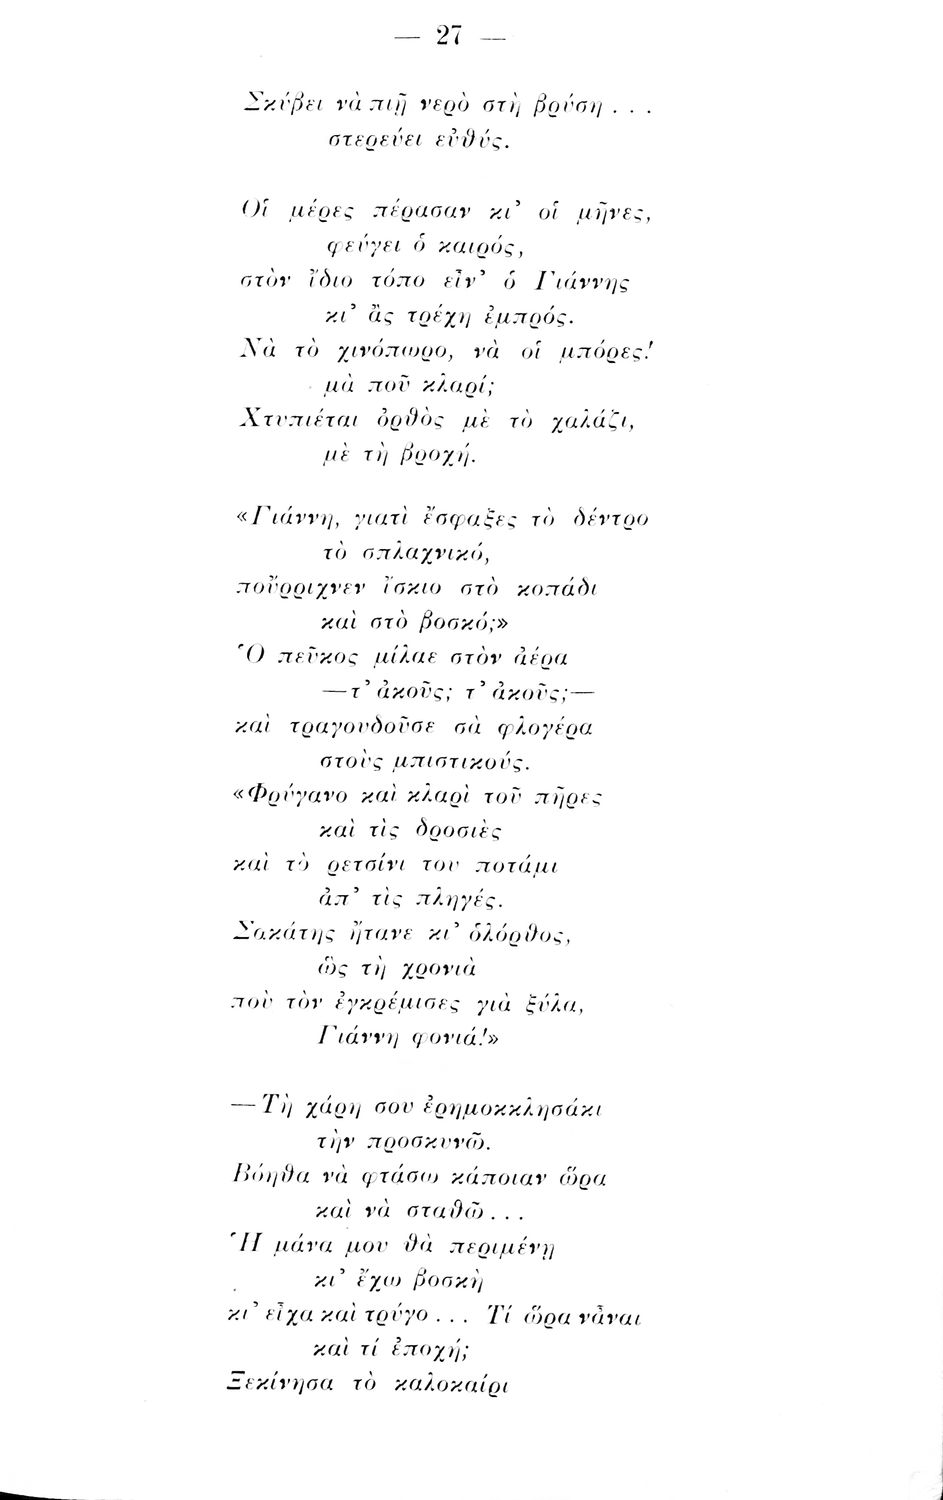 — 27 —
Σκύβει νὰ πιῇ νερὸ στὴ βρύση . . .
στερεύει εὐθύς.
Οἱ μέρες πέρασαν κι’ οἱ μῆνες,
φεύγει ὁ καιρός,
στὸν ἴδιο τόπο εἶν’ ὁ Γιάννης
κι’ ἂς τρέχη ἐμπρός.
Νὰ τὸ χινόπωρο, νὰ οἱ μπόρες!
μὰ ποῦ κλαρί;
Χτυπιέται ὀρθὸς μὲ τὸ χαλάζι,
μὲ τὴ βροχή.
«Γιάννη, γιατὶ ἔσφαξες τὸ δέντρο
τὸ σπλαχνικό,
ποὔρριχνεν ἴσκιο στὸ κοπάδι
καὶ στὸ βοσκό;»
Ὁ πεῦκος μίλαε στὸν ἀέρα
—τ’ ἀκοῦς; τ’ ἀκοῦς;—
καὶ τραγουδοῦσε σὰ φλογέρα
στοὺς μπιστικούς.
«Φρύγανο καὶ κλαρὶ τοῦ πῆρες
καὶ τὶς δροσιὲς
καὶ τὸ ρετσίνι του ποτάμι
ἀπ’ τὶς πληγές.
Σακάτης ἤτανε κι’ ὁλόρθος,
ὣς τὴ χρονιὰ
ποὺ τὸν ἐγκρέμισες γιὰ ξύλα,
Γιάννη φονιά!»
—Τὴ χάρη σου ἐρημοκκλησάκι
τὴν προσκυνῶ.
Βόηθα νὰ φτάσω κάποιαν ὥρα
καὶ νὰ σταθῶ . . .
Ἡ μάνα μου θὰ περιμένῃ
κι’ ἔχω βοσκὴ
κι’ εἶχα καὶ τρύγο . . . Τί ὥρα νἆναι
καὶ τί ἐποχή;
Ξεκίνησα τὸ καλοκαίρι